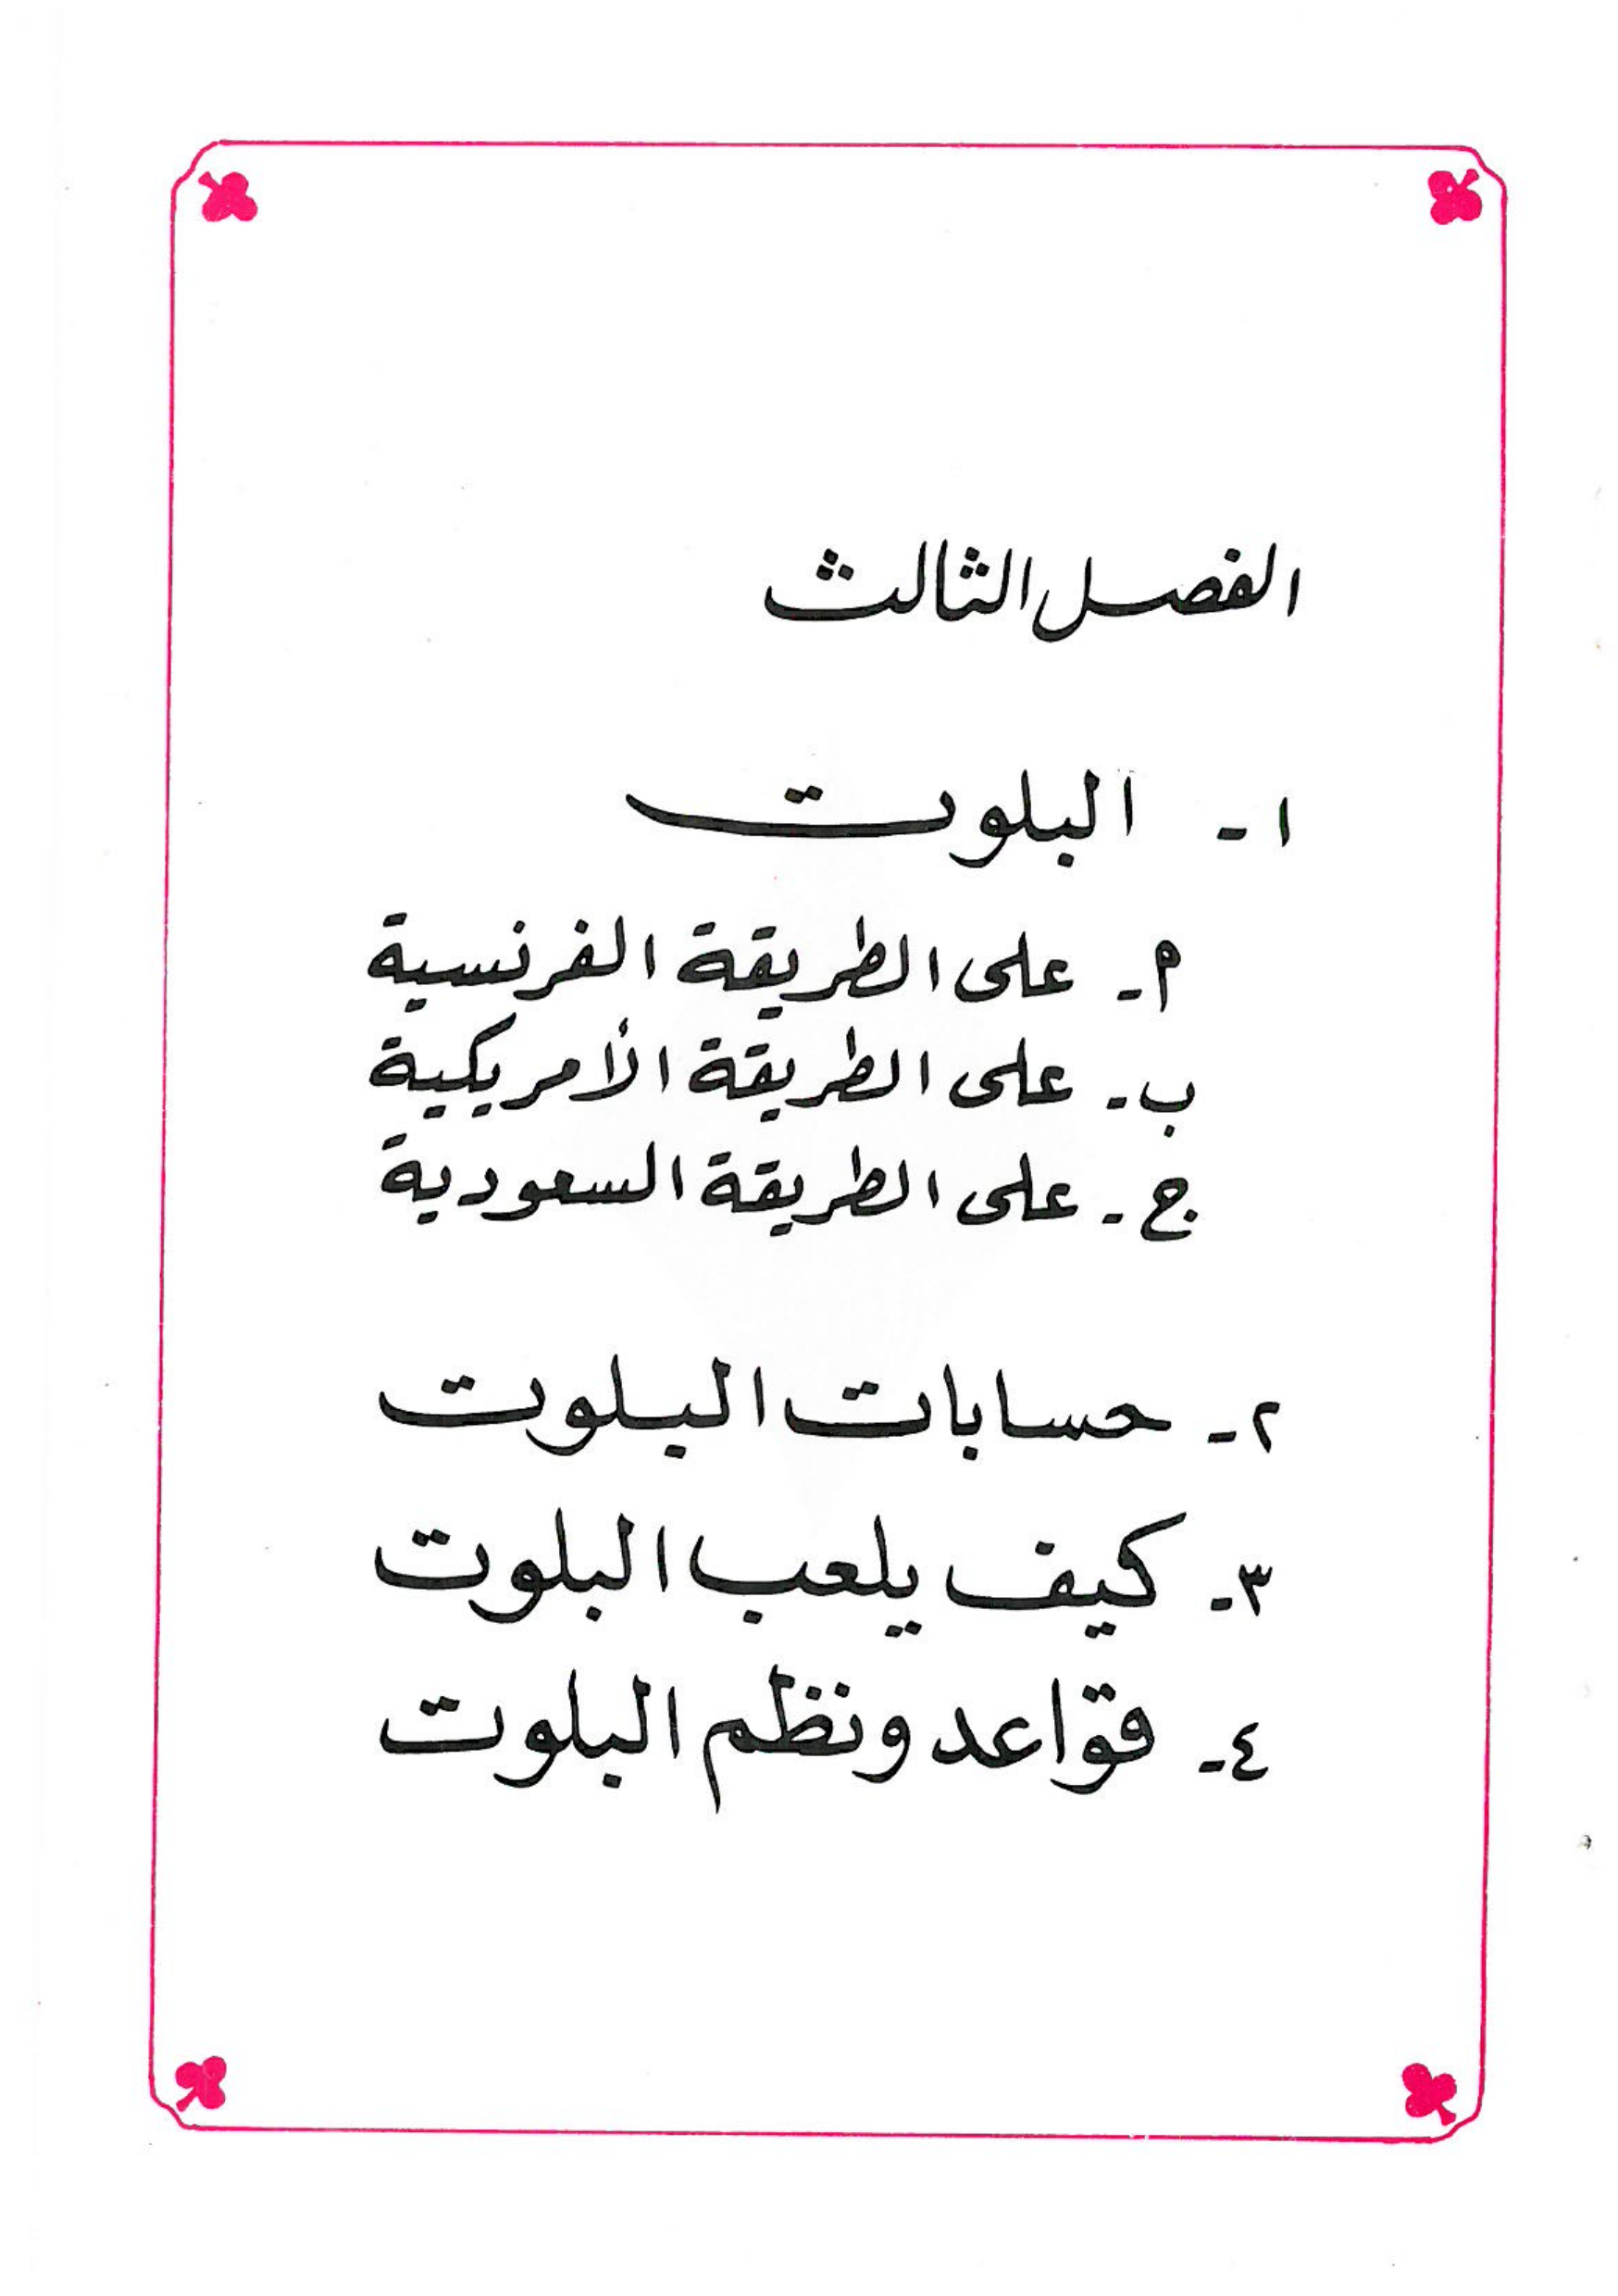 الفصل الثالث
١- البلوت
م- على الطريقة الفرنسية
ب- على الطريقة الأمريكية
ج- على الطريقة السعودية
٢- حسابات البلوت
٣- كيف يلعب البلوت
٤- قواعد ونظم البلوت